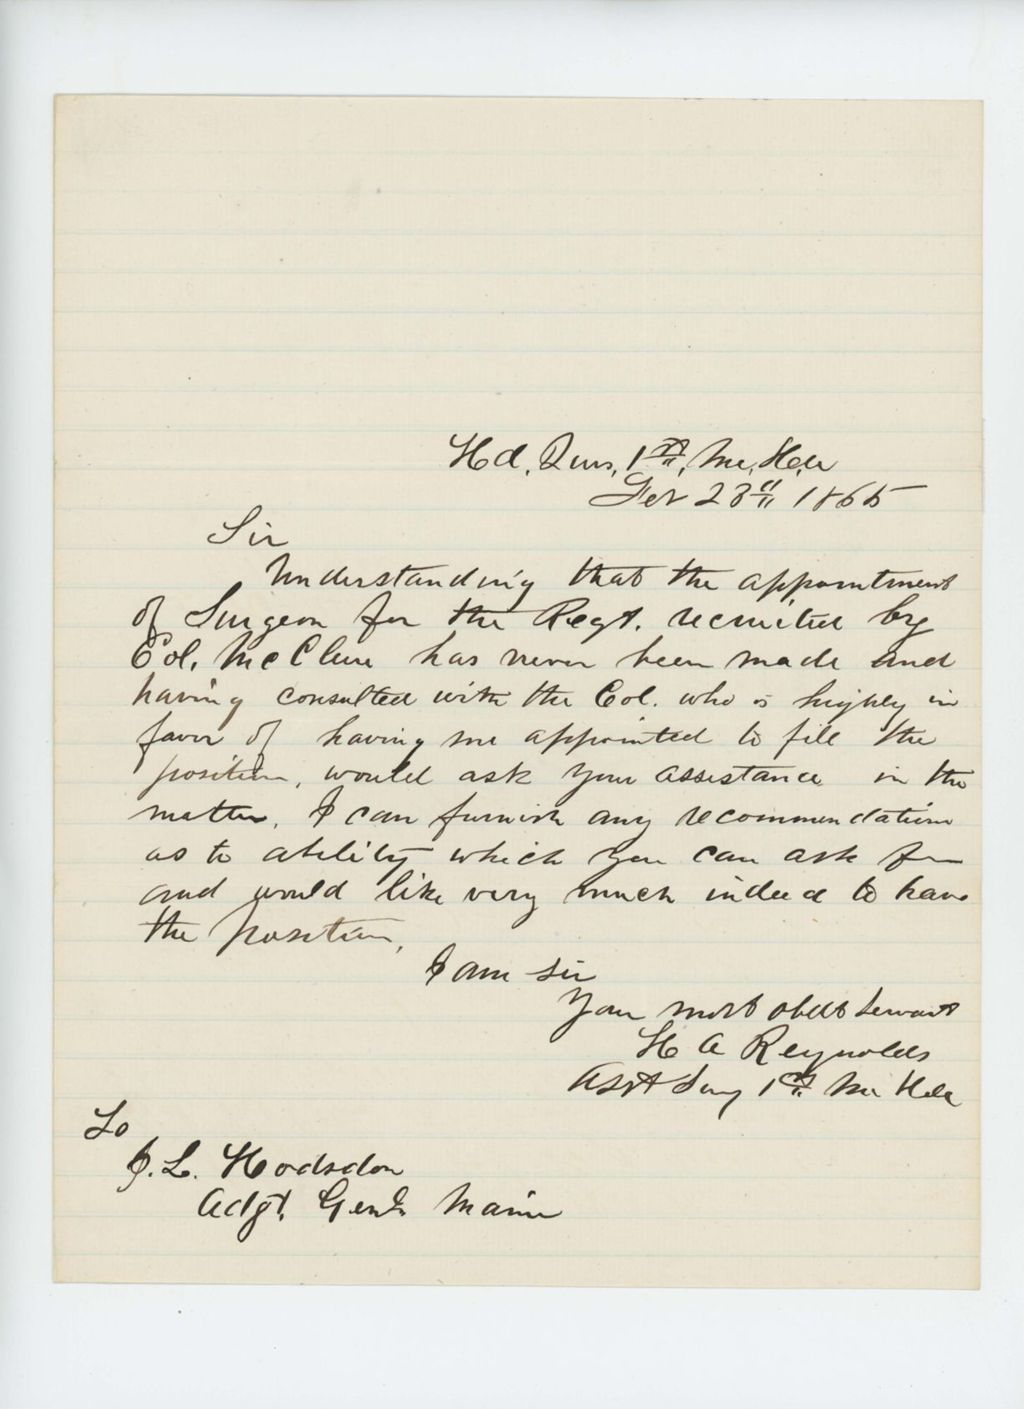 Hd. Qurs. 1st, Me, H.a
Feb 23" 1865
Sir
Understanding that the appointment
of Surgeon for the Regt. recruited by
Col. McClure has never been made and
having consulted with the Col. who is highly in
favor of having me appointed to fill the
position, would ask your assistance in the
matter, I can furnish any recommendation
as to ability which you can ask for
and would like very much indeed to have
the position,
I am sir
Your most obdt servant
H A Reynolds
Asst Surg 1st Me H.a
To
J. L. Hodsdon
Adgt, Genl. Maine